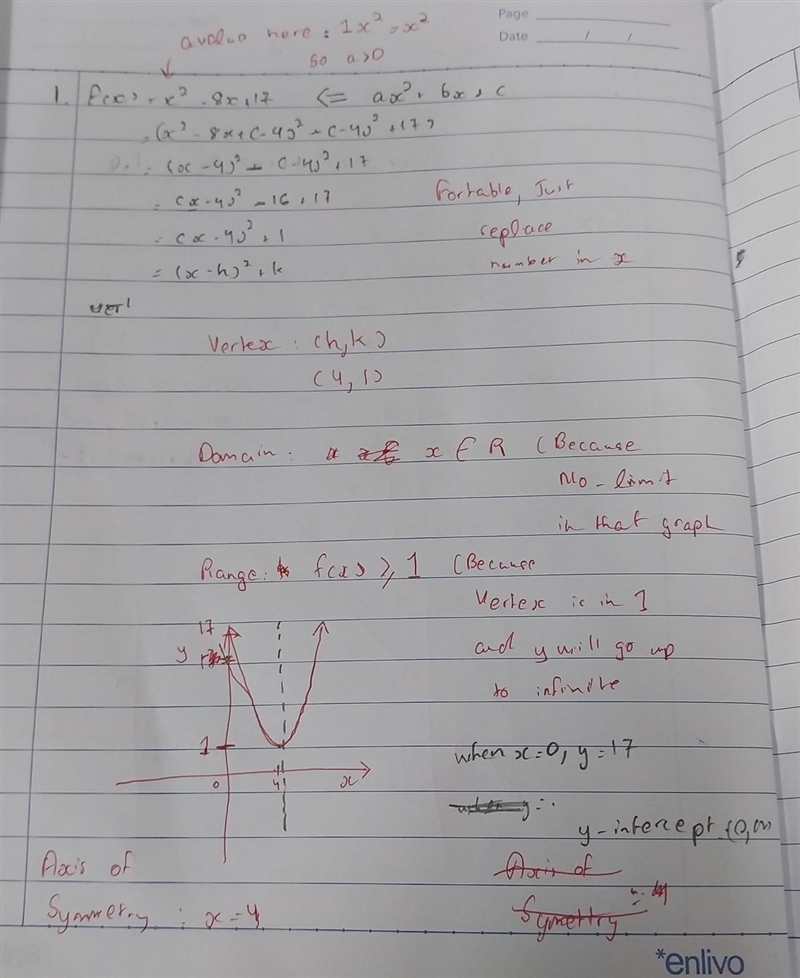 Page
Date / /
a value here : 1x² = x²
so a>0
1. f(x) = x² - 8x + 17 <= ax² + bx + c
= (x² - 8x + (-4)² - (-4)² + 17)
= (x - 4)² - (-4)² + 17
= (x - 4)² - 16 + 17
= (x - 4)² + 1
= (x - h)² + k
For table, Just
replace
number in x
ver
Vertex : (h, k)
(4, 1)
Domain : x ∈ R (Because
No - limit
in that graph
Range : f(x) ≥ 1 (Because
Vertex is in 1
and y will go up
to infinite
17
y
1
0
4
x
when x=0, y=17
y=
y-intercept (0,
Axis of
Symmetry : x = 4
Axis of
Symettry
*enlivo